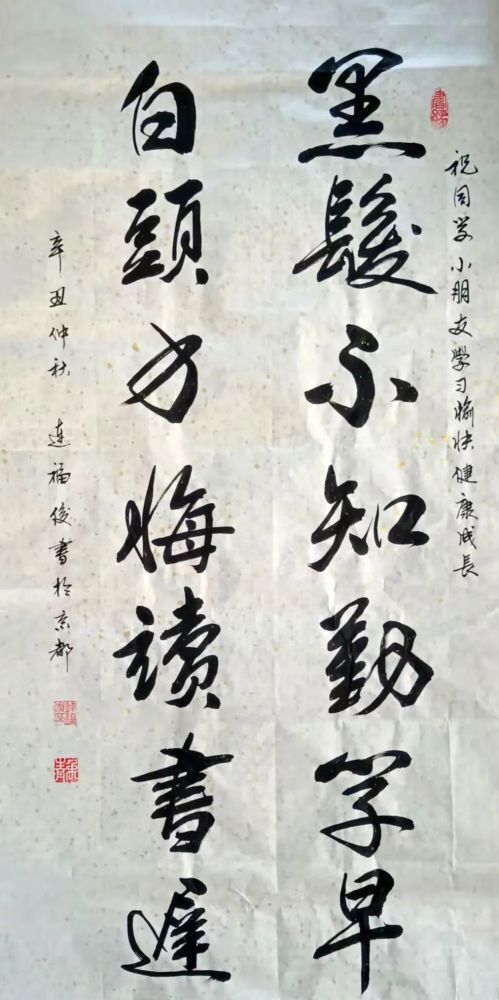 祝同学小朋友學习愉快健康成長
黑髮不知勤学早
白頭方悔讀書遲
辛丑仲秋 连福俊書於京都